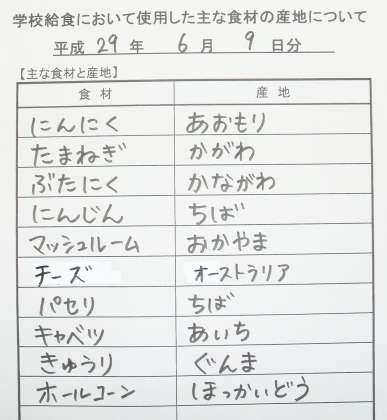 学校給食において使用した主な食材の産地について
平成 29 年 6 月 9 日分
【主な食材と産地】
食材 産地
にんにく あおもり
たまねぎ かがわ
ぶたにく かながわ
にんじん ちば
マッシュルーム おかやま
チーズ オーストラリア
パセリ ちば
キャベツ あいち
きゅうり ぐんま
ホールコーン ほっかいどう